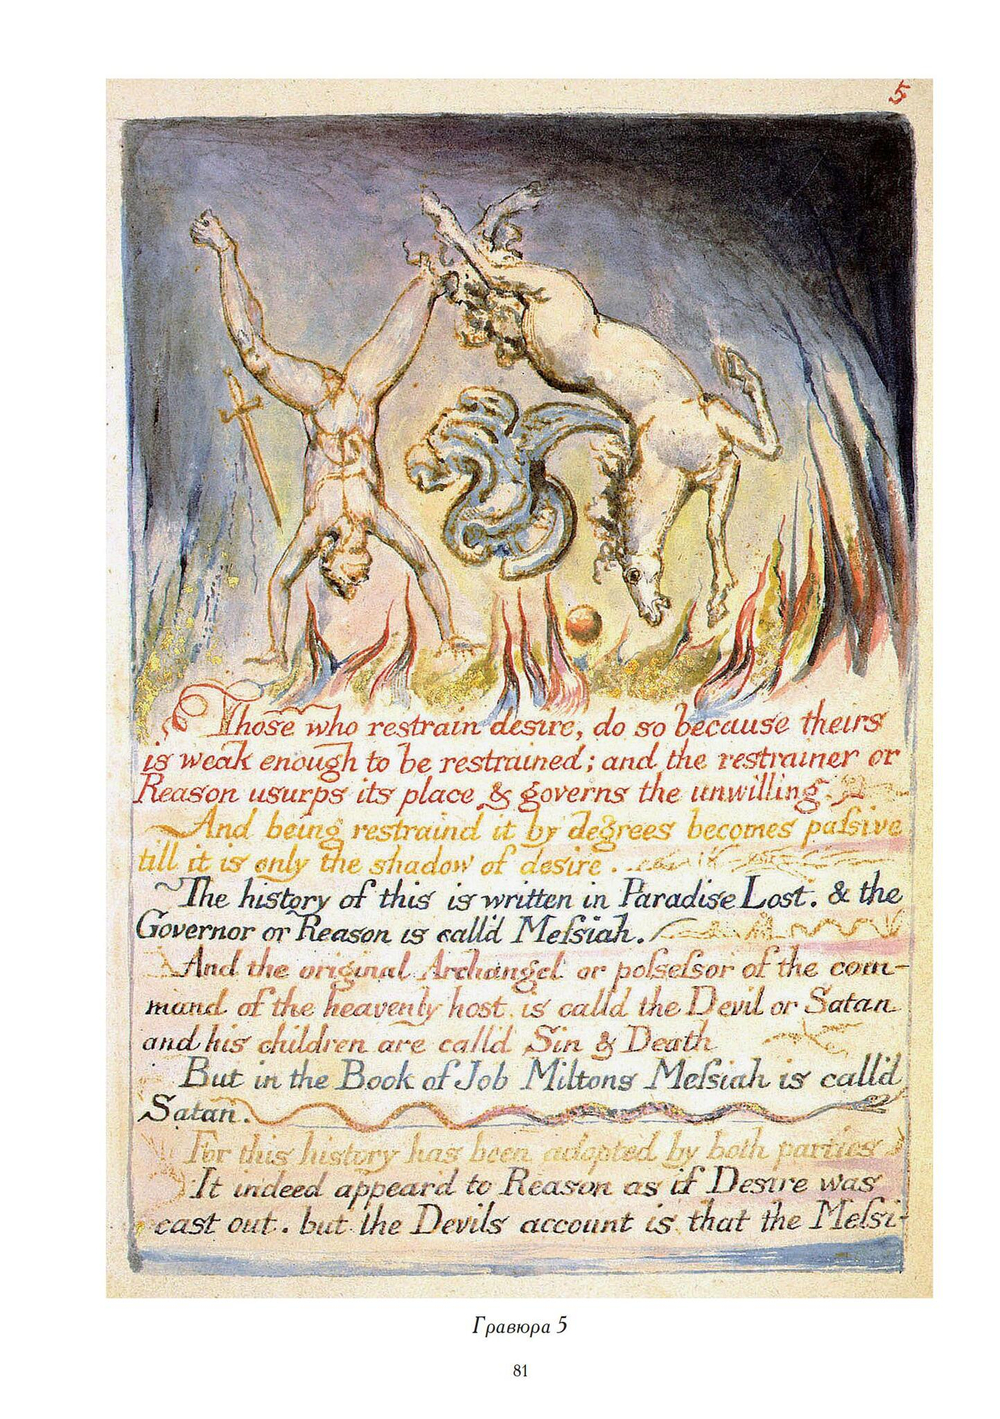 5
Those who restrain desire, do so because theirs
is weak enough to be restrained; and the restrainer or
Reason usurps its place & governs the unwilling.
And being restraind it by degrees becomes paſsive
till it is only the shadow of desire.
The history of this is written in Paradise Lost. & the
Governor or Reason is call'd Meſsiah.
And the original Archangel or poſseſsor of the com-
mand of the heavenly host, is calld the Devil or Satan
and his children are call'd Sin & Death
But in the Book of Job Miltons Meſsiah is call'd
Satan.
For this history has been adopted by both parties
It indeed appear'd to Reason as if Desire was
cast out. but the Devils account is, that the Meſsi-
Гравюра 5
81